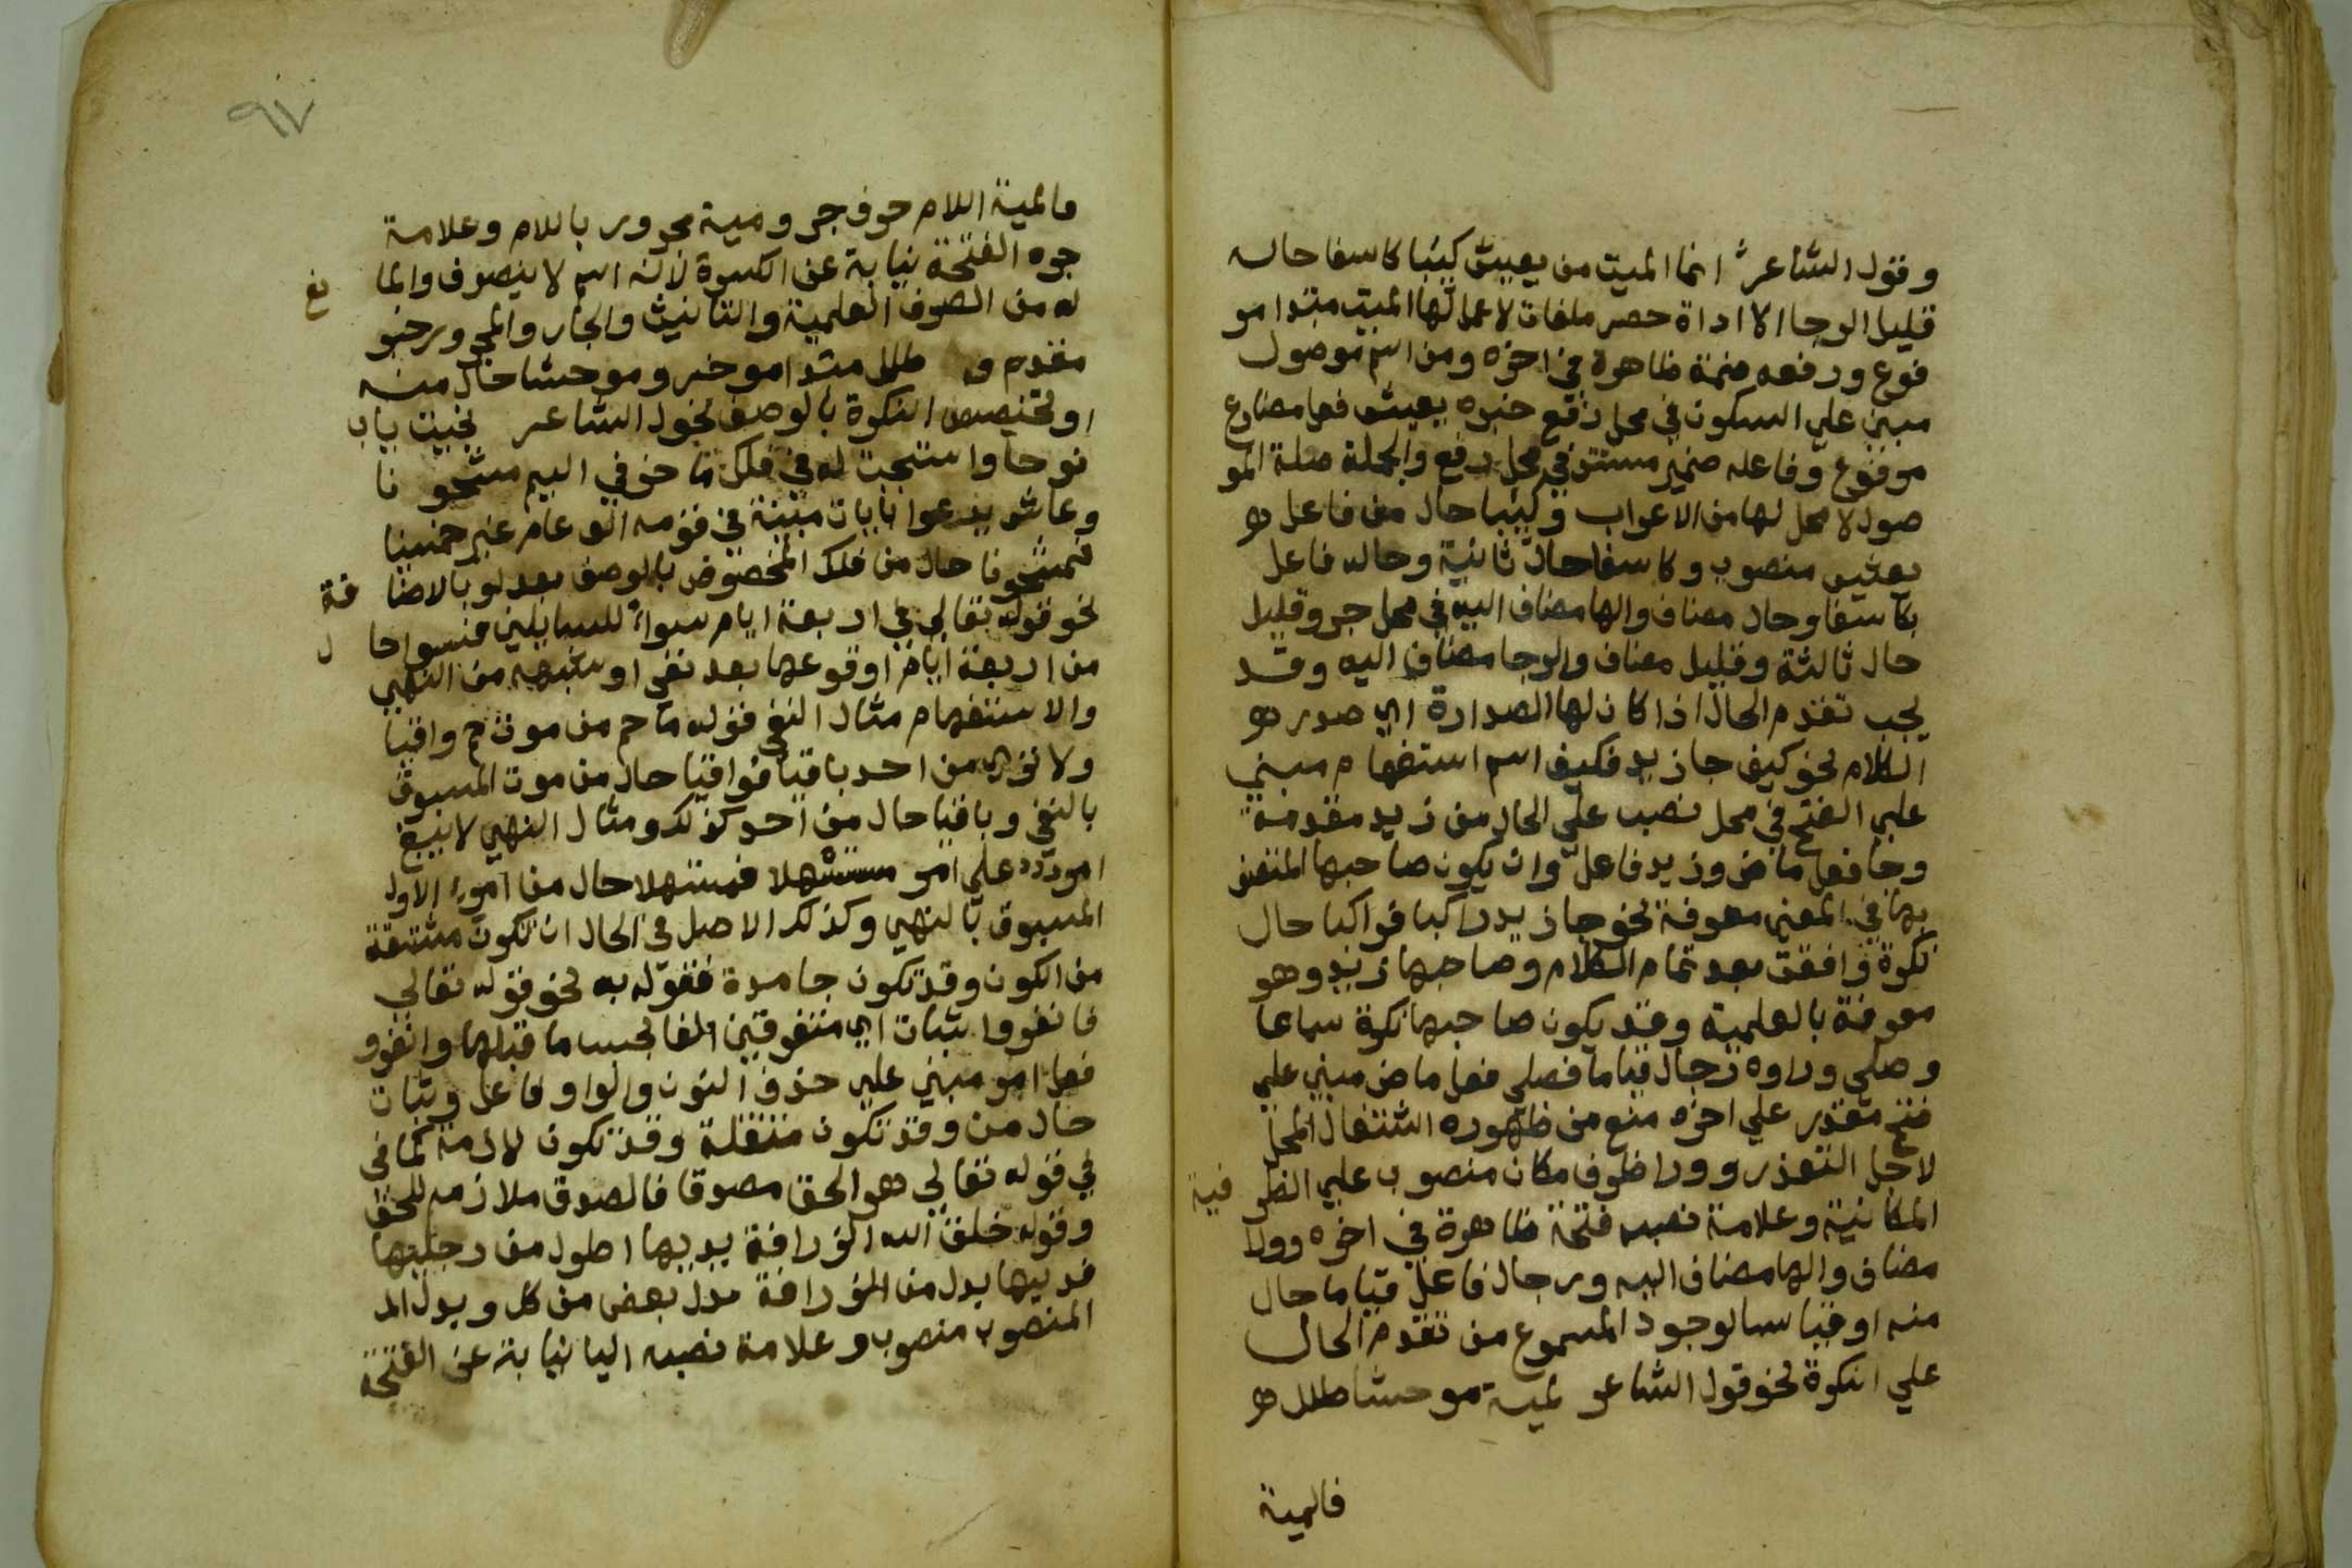 وقول الشاعر انما الميت من يعيش كئيبا كاسفا حاله
قليل الرجا الا اداة حصر ملغات لا عمل لها الميت مبتدا مر
فوع ورفعه ضمة ظاهرة في اخره ومن اسم موصول
مبني علي السكون في محل رفع خبره يعيش فعل مضارع
مرفوع وفاعله ضمير مستتر في محل رفع والجملة صلة المو
صول لا محل لها من الاعراب وكئيبا حال من فاعل هـ
يعيش منصوب وكاسفا حال ثانية وحاله فاعل
بكاسفا وحال مضاف والها مضاف اليه في محل جر وقليل
حال ثالثة وقليل مضاف والرجا مضاف اليه وقد
يجب تقدم الحال اذا كان لها الصدارة اي صدر هـ
الكلام نحو كيف جا زيد فكيف اسم استفهام مبني
علي الفتح في محل نصب علي الحال من زيد مقدمة
وجا فعل ماض وزيد فاعل وان يكون صاحبها المتصف
بها في المعني معرفة نحو جا زيد راكبا فراكبا حال
نكرة وافقت بعد تمام الكلام وصاحبها زيد وهو
معرفة بالعلمية وقد يكون صاحبها نكرة سماعا
وصلي وراوه رجال قياما فصلي فعل ماض مبني علي
فتح مقدر علي اخره منع من ظهوره اشتغال المحل
لاجل التعذر وورا ظرف مكان منصوب علي الظر فية
المكانية وعلامة نصبه فتحة ظاهرة في اخره وورا
مضاف والها مضاف اليه ورجال فاعل قياما حال
منه او قياسا لوجود المسموع من تقدم الحال
علي النكرة نحو قول الشاعر لمية موحشا طلل هـ
فالمية
٩٧
فالمية اللام حرف جر ومية مجرور باللام وعلامة
جره الفتحة نيابة عن الكسرة لانه اسم لا ينصرف والما نع
له من الصرف العلمية والتانيث والجار والمجرور خبر
مقدم و طلل مبتدا موخر وموحشا حال منه
او تخصيص النكرة بالوصف نحول الشاعر نجيت يارب
نوحا واستجبت له في فلك ماخر في اليم مشحو نا
وعاش يدعوا بايات مبينة في قومه الف عام غير خمسينا
فمشحونا حال من فلك المخصوص بالوصف بعد لو بالاضا فة
نحو قوله تعالي في اربعة ايام سواء للسايلين فسوا حا ل
من اربعة ايام او قوعها بعد نفي او شبهه من النهي
والاستفهام مثال النفي قوله ما حم من موت حم واقيا
ولا تري من احد باقيا فواقيا حال من موت المسبوق
بالنفي وباقيا حال من احد كذلك ومثال النهي لا يبغ
امرؤ علي امر مستسهلا فمستهلا حال من امرء الاول
المسبوق بالنهي وكذلك الاصل في الحال ان تكون مشتقة
من الكون وقد تكون جامدة فقوله به نحو قوله تعالي
فانفروا ثبات اي متفرقين الفا بحسب ما قبلها وانفرو
فعل امر مبني علي حذف النون والواو فاعل وثبات
حال من وقد تكون منتقلة وقد تكون لازمة كما في
في قوله تعالي هو الحق مصدقا فالصدق ملازمه للحق
وقوله خلق الله الزرافة يديها اطول من رجليها
فديها بدل من الزرافة بدل بعض من كل وبدل الم
المنصوب منصوب وعلامة نصبه اليا نيابة عن الفتحة